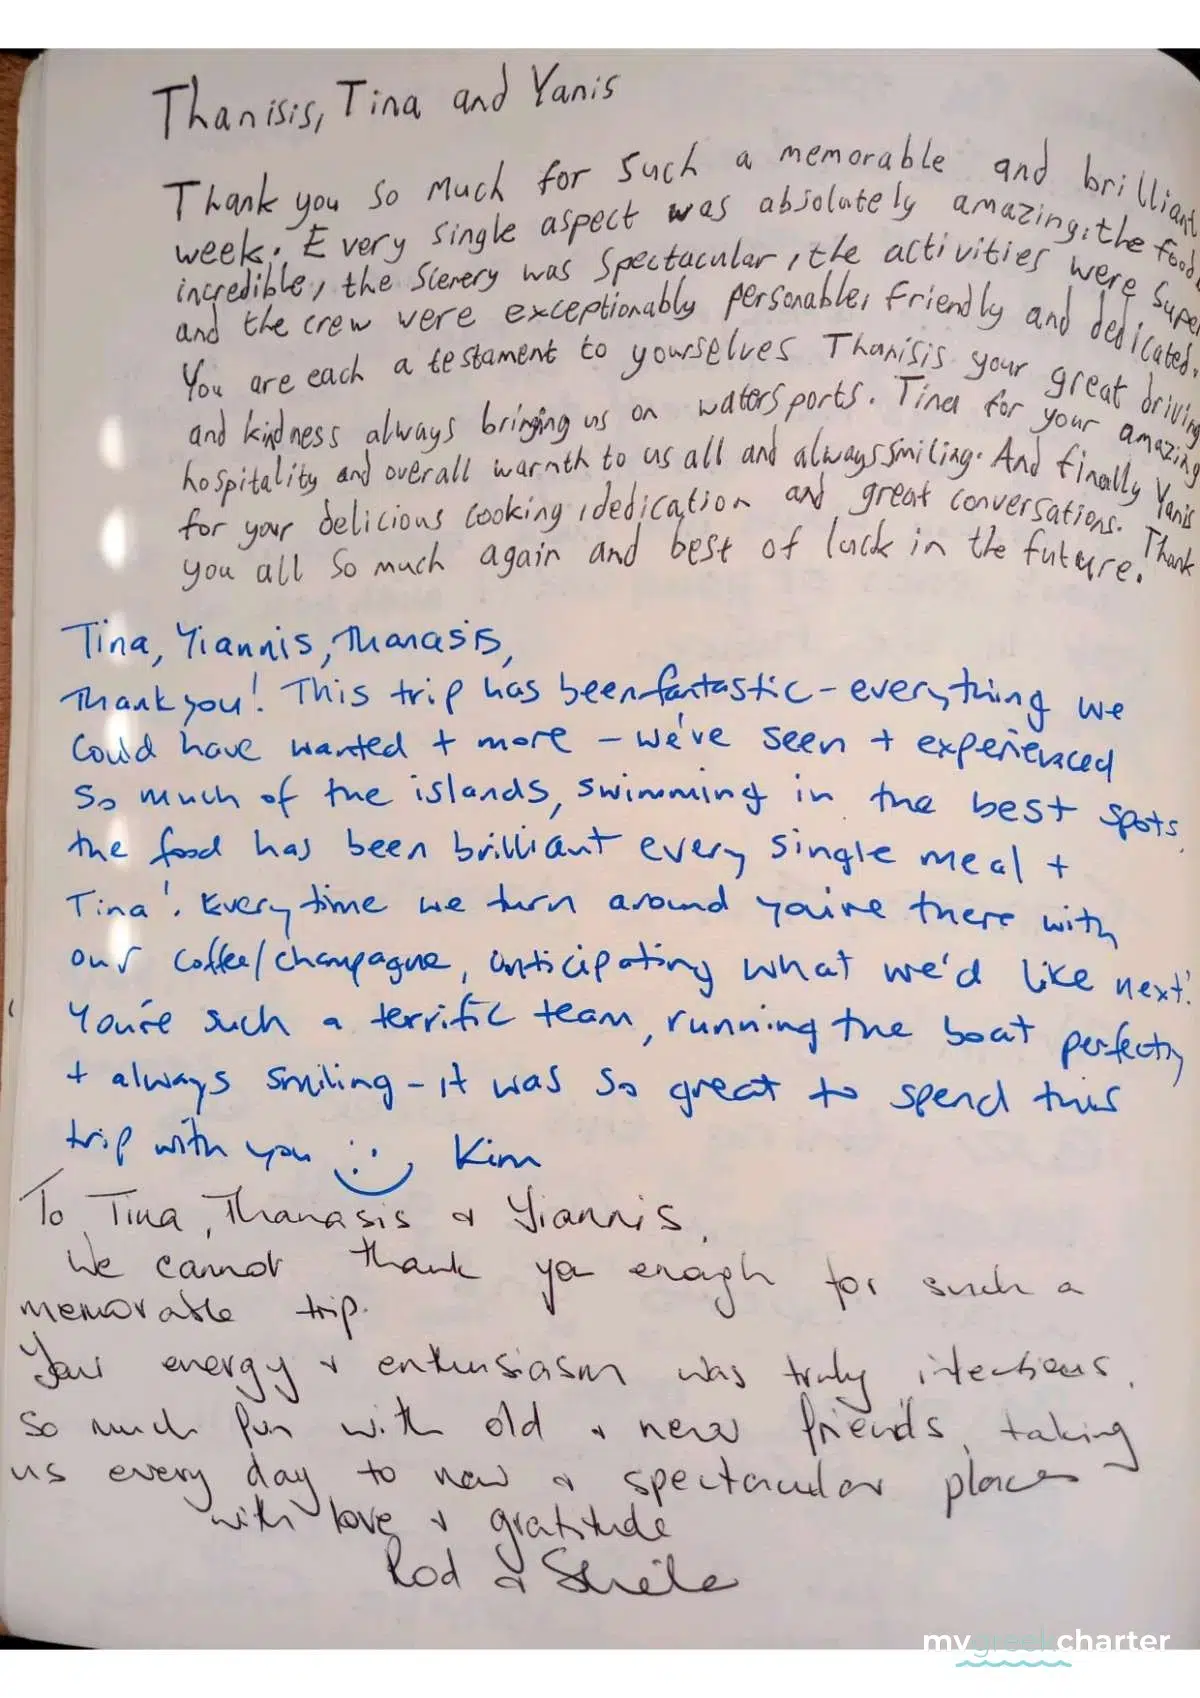 Thanisis, Tina and Yanis
Thank you so much for such a memorable and brilliant
week. Every single aspect was absolutely amazing, the food
incredible, the scenery was spectacular, the activities were supe
and the crew were exceptionably personable, friendly and dedicated.
You are each a testament to yourselves Thanisis your great driving
and kindness always bringing us on watersports. Tina for your amazing
hospitality and overall warmth to us all and always smiling. And finally Yanis
for your delicious cooking, dedication and great conversations. Thank
you all so much again and best of luck in the future.
Tina, Yiannis, Thanasis,
Thank you! This trip has been fantastic - everything we
could have wanted + more - we've seen + experienced
so much of the islands, swimming in the best spots,
the food has been brilliant every single meal +
Tina! Everytime we turn around you're there with
our coffee/champagne, anticipating what we'd like next!
You're such a terrific team, running the boat perfectly
+ always smiling - it was so great to spend this
trip with you Kim
To Tina, Thanasis & Yiannis,
We cannot thank you enough for such a
memorable trip.
Your energy & enthusiasm was truly infectious.
So much fun with old & new friends, taking
us every day to new & spectacular places
with love & gratitude
Rod & Sheila
mygreekcharter